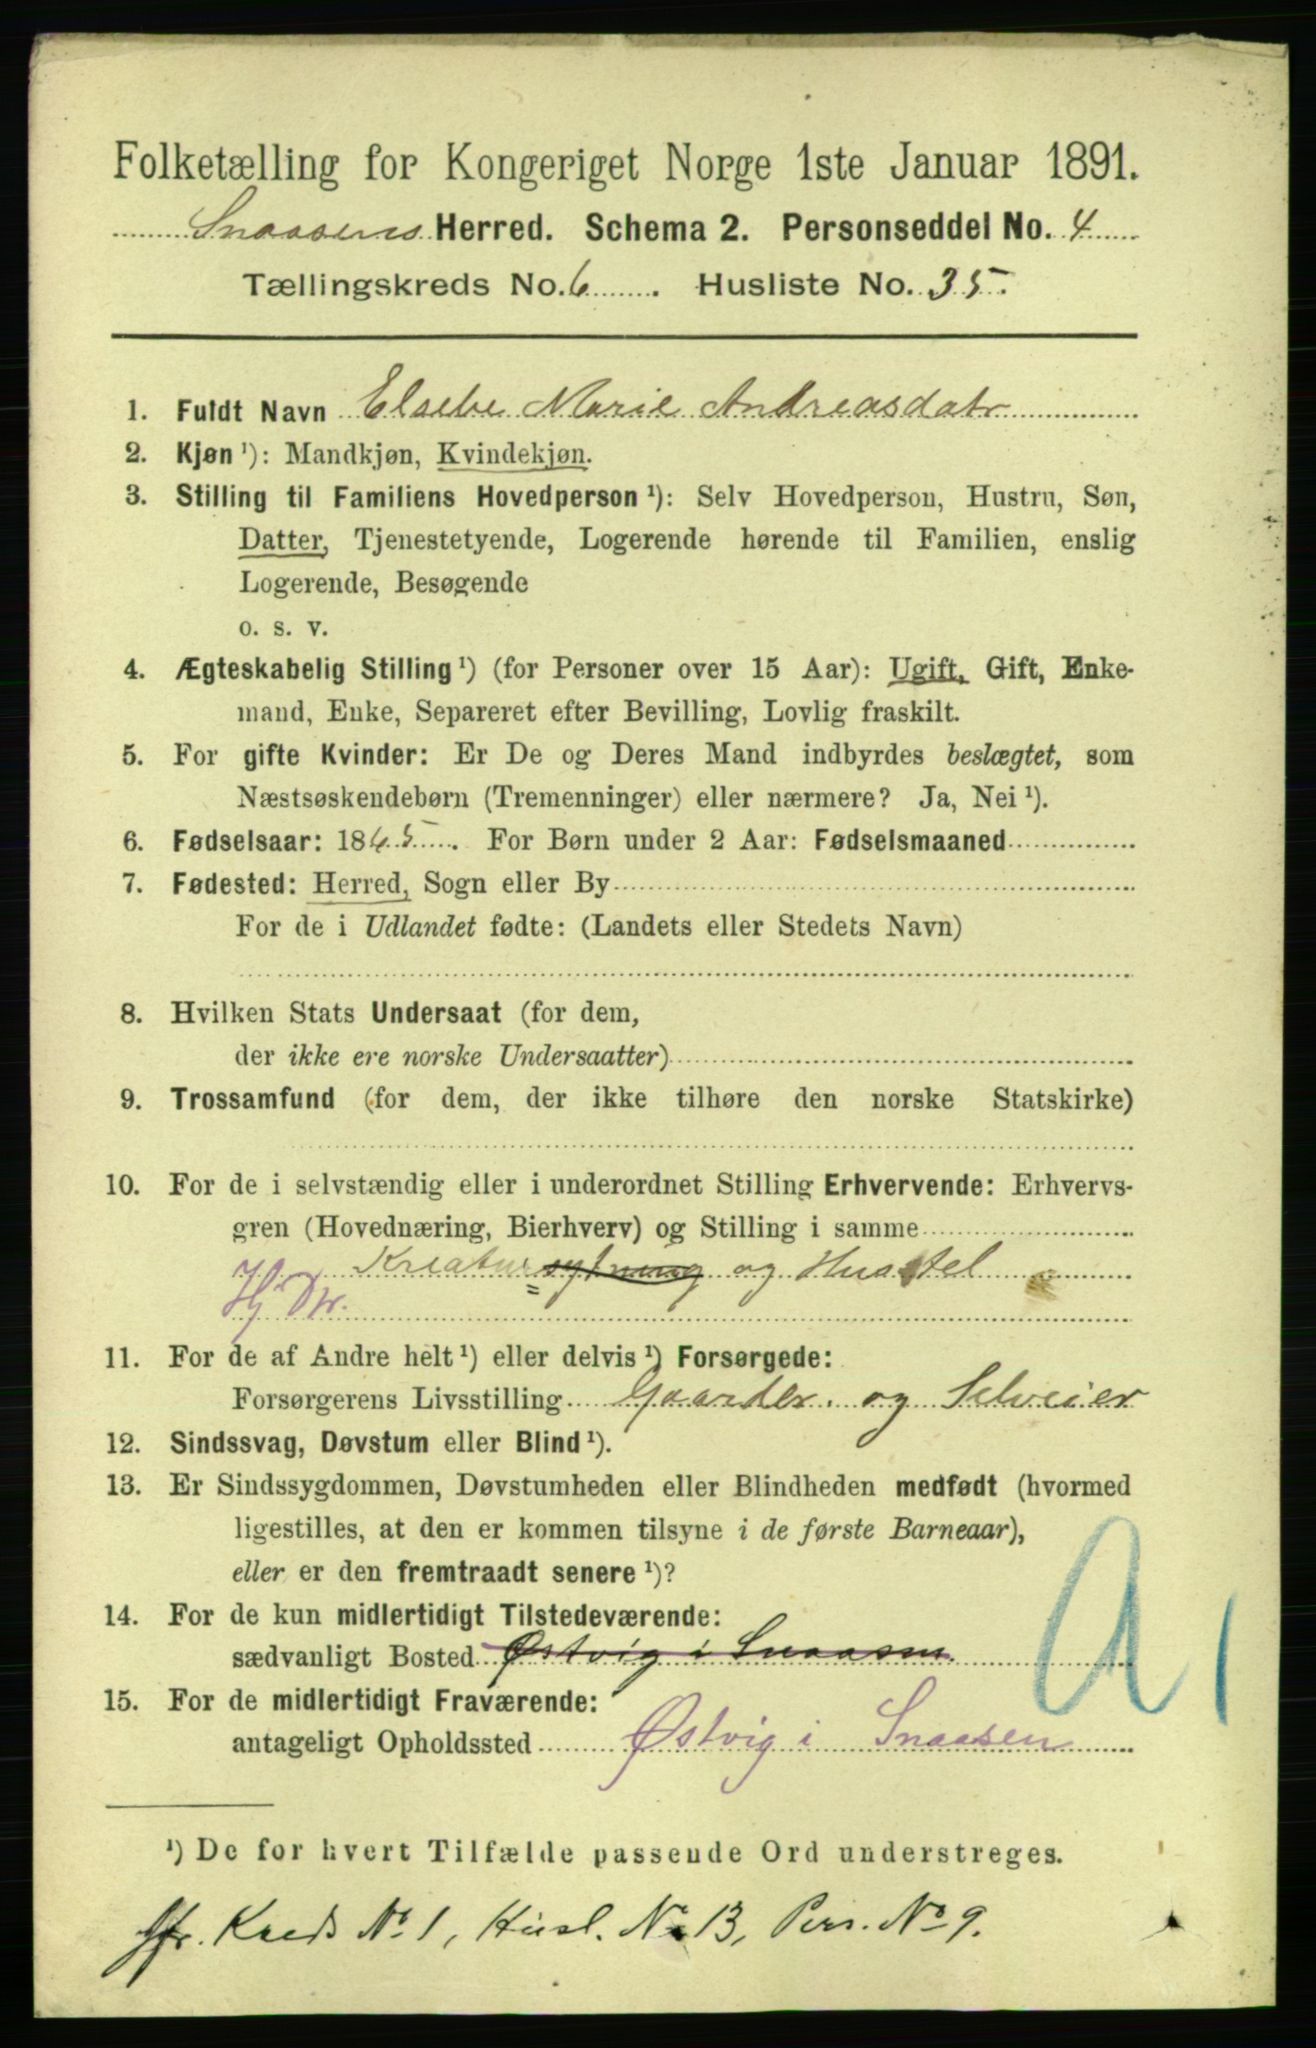 Folketælling for Kongeriget Norge 1ste Januar 1891.
Snaasens Herred. Schema 2. Personseddel No. 4
Tællingskreds No. 6. Husliste No. 35.
1. Fuldt Navn Elsebe Marie Andreasdatr
2. Kjøn ¹): Mandkjøn, Kvindekjøn.
3. Stilling til Familiens Hovedperson ¹): Selv Hovedperson, Hustru, Søn,
Datter, Tjenestetyende, Logerende hørende til Familien, enslig
Logerende, Besøgende
o. s. v.
4. Ægteskabelig Stilling ¹) (for Personer over 15 Aar): Ugift, Gift, Enke-
mand, Enke, Separeret efter Bevilling, Lovlig fraskilt.
5. For gifte Kvinder: Er De og Deres Mand indbyrdes beslægtet, som
Næstsøskendebørn (Tremenninger) eller nærmere? Ja, Nei ¹).
6. Fødselsaar: 1865. For Børn under 2 Aar: Fødselsmaaned
7. Fødested: Herred, Sogn eller By
For de i Udlandet fødte: (Landets eller Stedets Navn)
8. Hvilken Stats Undersaat (for dem,
der ikke ere norske Undersaatter)
9. Trossamfund (for dem, der ikke tilhøre den norske Statskirke)
10. For de i selvstændig eller i underordnet Stilling Erhvervende: Erhvervs-
gren (Hovednæring, Bierhverv) og Stilling i samme
Kreatursytning og Husstel
Hj Dtr.
11. For de af Andre helt ¹) eller delvis ¹) Forsørgede:
Forsørgerens Livsstilling Gaardbr. og Selveier
12. Sindssvag, Døvstum eller Blind ¹).
13. Er Sindssygdommen, Døvstumheden eller Blindheden medfødt (hvormed
ligestilles, at den er kommen tilsyne i de første Barneaar),
eller er den fremtraadt senere ¹)?
14. For de kun midlertidigt Tilstedeværende:
sædvanligt Bosted Østvig i Snaasen.
15. For de midlertidigt Fraværende:
antageligt Opholdssted Østvig i Snaasen
A 1
¹) De for hvert Tilfælde passende Ord understreges.
Jfr. Kreds No 1, Husl. No 13, Pers. No 9.